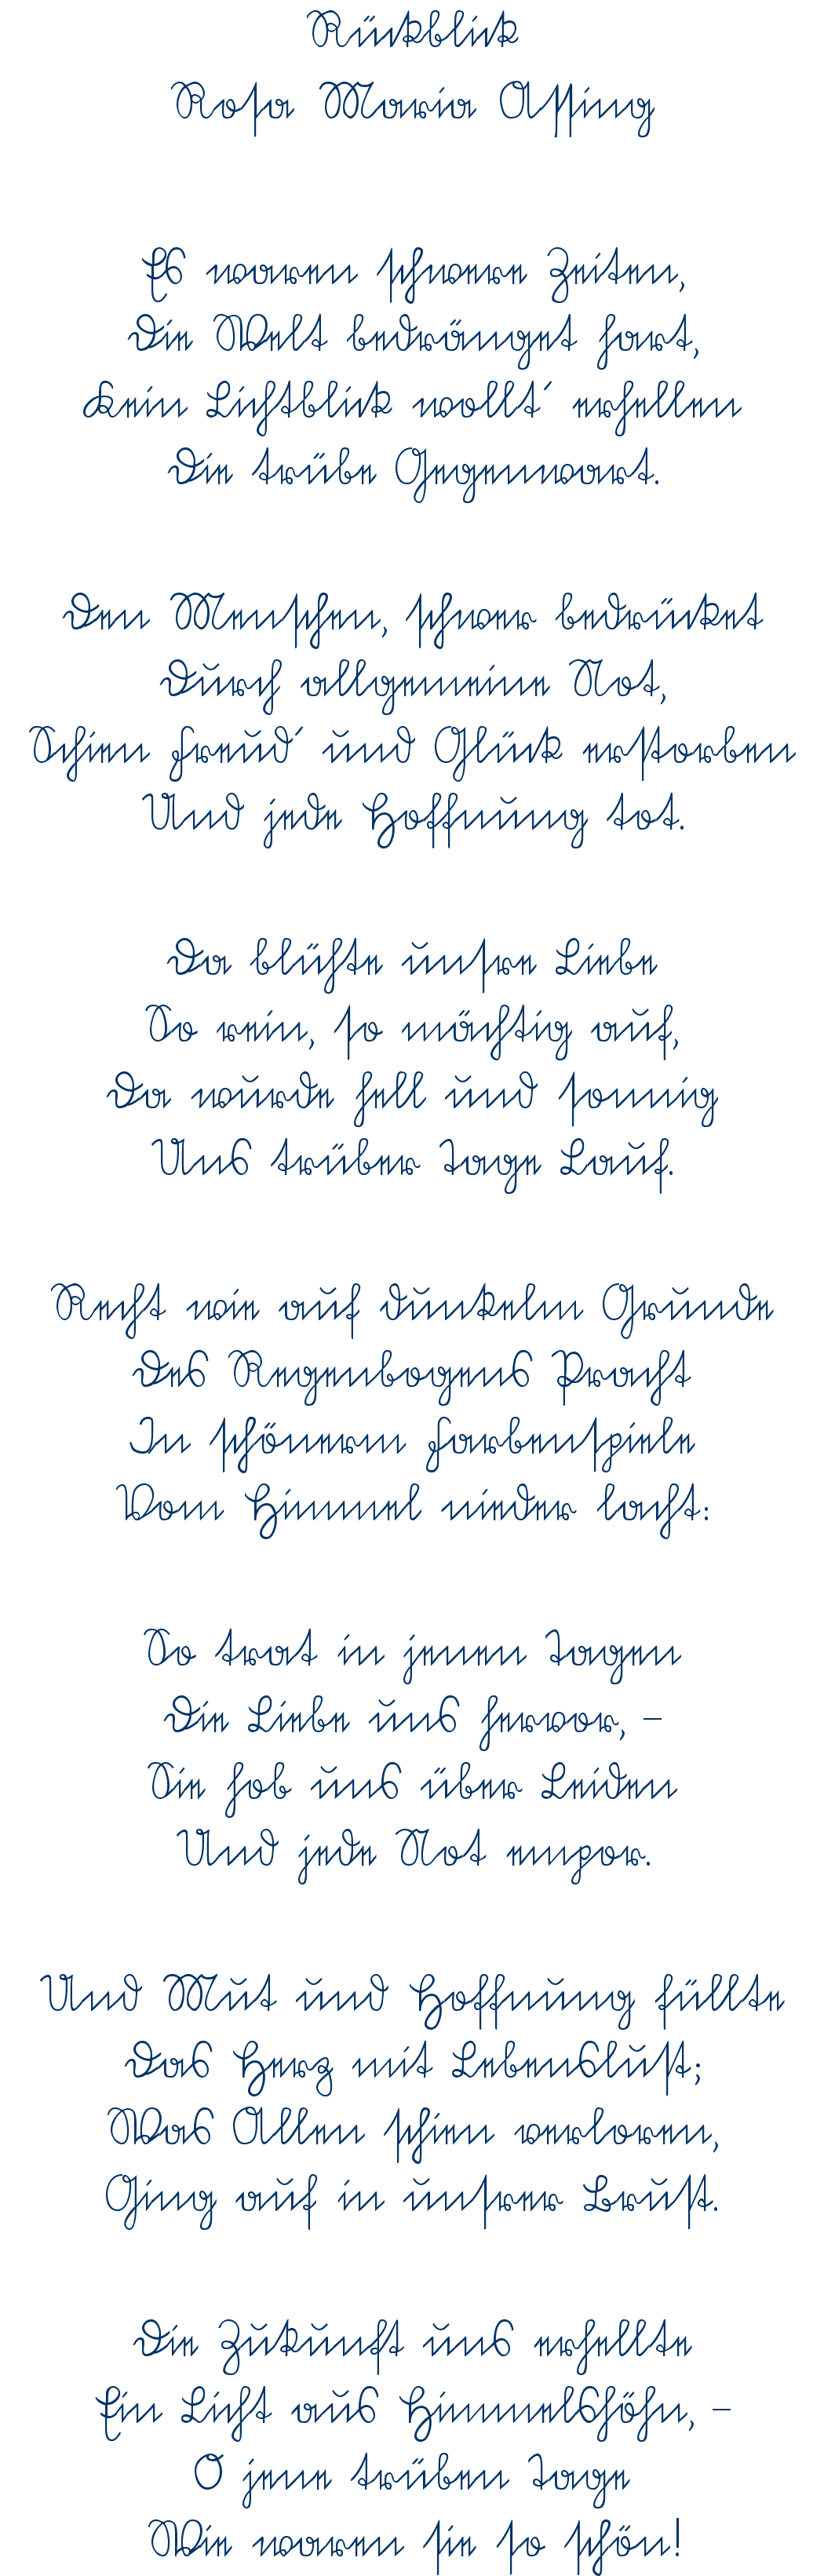 Rückblick
Rosa Maria Assing
Es waren schwere Zeiten,
Die Welt bedränget hart,
Kein Lichtblick wollt´ erhellen
Die trübe Gegenwart.
Den Menschen, schwer bedrücket
Durch allgemeine Not,
Schien Freud´ und Glück erstorben
Und jede Hoffnung tot.
Da blühte unsre Liebe
So rein, so mächtig auf,
Da wurde hell und sonnig
Uns trüber Tage Lauf.
Recht wie auf dunkelm Grunde
Des Regenbogens Pracht
In schönerm Farbenspiele
Vom Himmel nieder lacht:
So trat in jenen Tagen
Die Liebe uns hervor, –
Sie hob uns über Leiden
Und jede Not empor.
Und Mut und Hoffnung füllte
Das Herz mit Lebenslust;
Was Allen schien verloren,
Ging auf in unsrer Brust.
Die Zukunft uns erhellte
Ein Licht aus Himmelshöhn, –
O jene trüben Tage
Wie waren sie so schön!